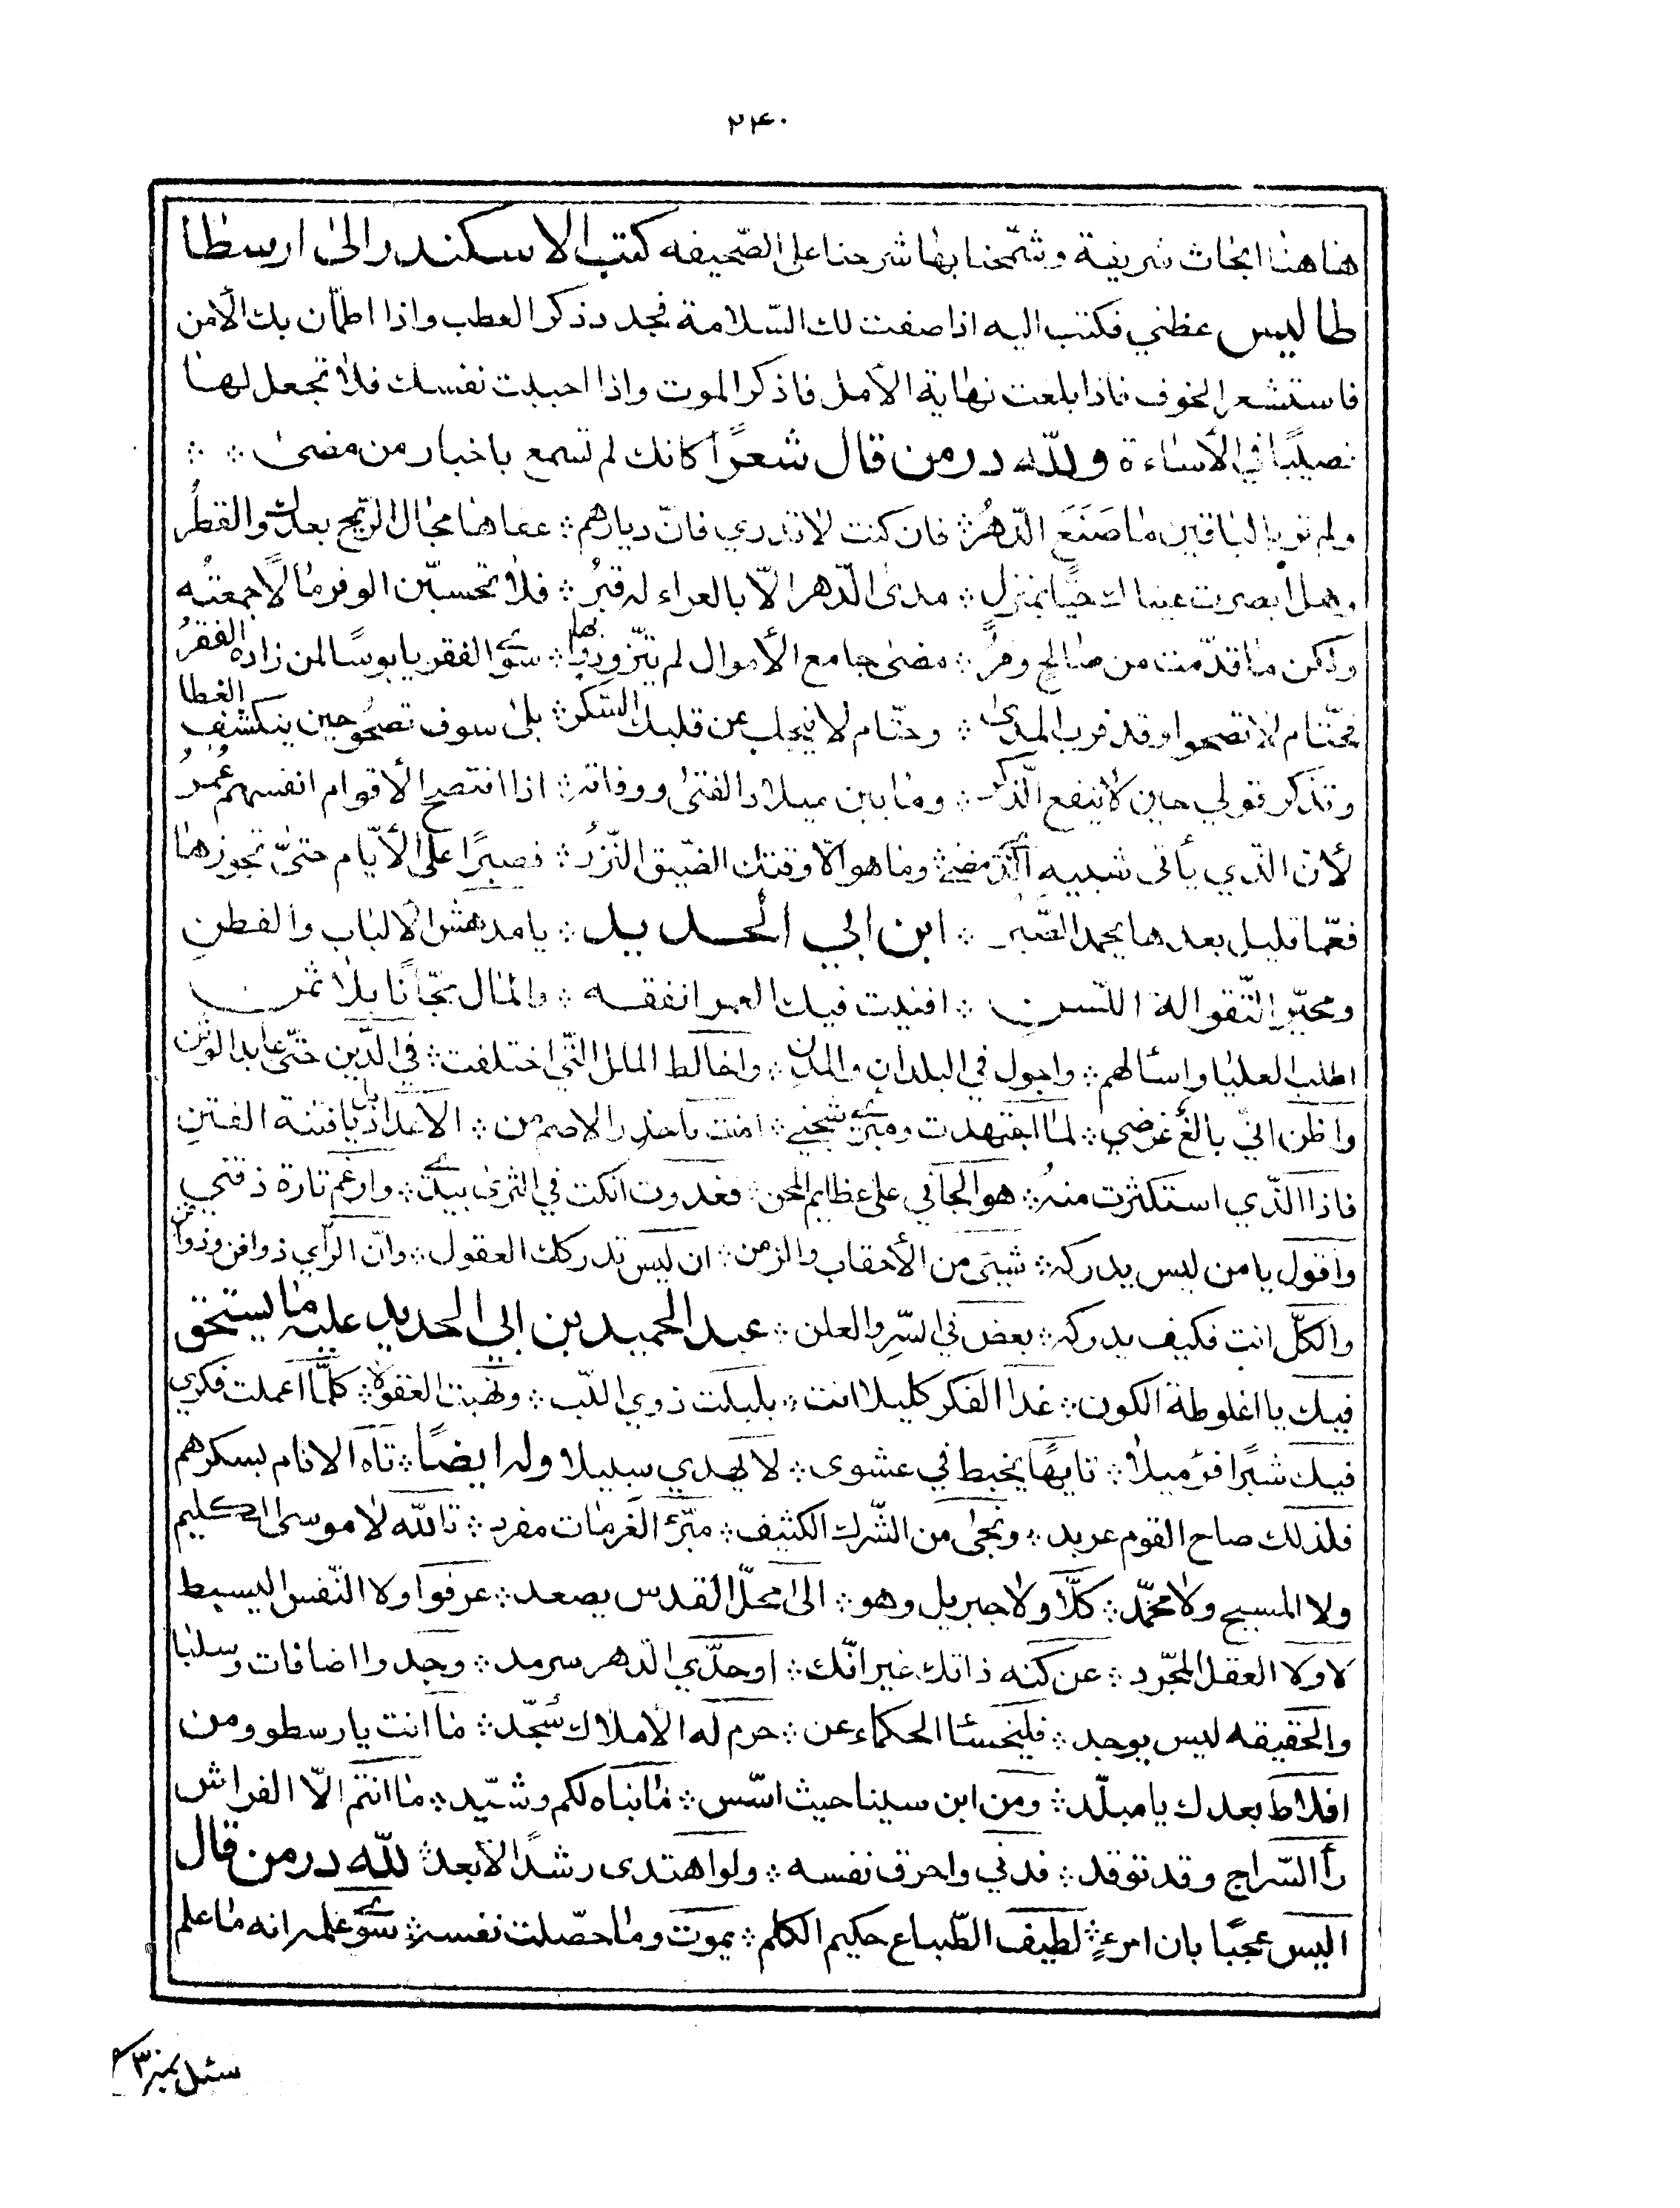 ۲۴۰
هناهنا ابحاث شريفة وشّحنا بها شرحنا على الصّحيفه كتب الاسكندر الى ارسطا
طاليس عظني فكتب اليه اذا صفت لك السّلامة فجدد ذكر العطب واذا اطمأن بك الأمن
فاستشعر الخوف فاذا بلغت نهاية الأمل فاذكر الموت واذا احببت نفسك فلا تجعل لها
نصيبًا في الأساءة ولله در من قال شعرًا كانك لم تسمع باخبار من مضى ؞ ؞
ولم تر بالباقين ما صَنَعَ الدّهرُ؞ فان كنت لا تدري فانّ ديارهم؞ عفاها مجال الرّيح بعدك والقطرُ
وهل ابصرت عيناك حيًا بمنزل؞ مدى الدّهر الّا بالعراء له قبرُ؞ فلا تحسبّن الوفر مالًا جمعته
ولكن ما قدّمت من صالح وفرُ؞ مضى جامع الأموال لم يتزودوا بها؞ سوى الفقر يا بوسًا لمن زاده الفقرُ
فحتّام لا تصحوا وقد قرب المدى؞ وحتّام لا ينجاب عن قلبك السّكر؞ بلى سوف تصحو حين ينكشف الغطا
وتذكر قولي حين لا ينفع الذّكر؞ وما بين ميلاد الفتى ووفاته؞ اذا انتصح الأقوام انفسهم عُمرُ
لأن الذي يأتي شبيه الّذي مضى؞ وما هو الّا وقتك الضيّق النّزرُ؞ فصبرًا على الأيّام حتّى تجوزها
فعمّا قليل بعدها يحمد الصّبر؞ ابن ابي الحديد؞ يا مدهش الألباب والفطنِ
ومحيّر التّقوالة اللّسنِ؞ افنيت فيك العمر انفقه؞ والمال مجّانًا بلا ثمن
اطلب العليا واسألهم؞ واجول في البلدان والمدن؞ واخالط الملل الّتي اختلفت؞ في الدّين حتّى عابد الوثن
واظن انّي بالغ غرضي؞ لما اجتهدت ومبرئ شجني؞ امنت يا جذر الاصم من؞ الأعداد بل يا فتنة الفتنِ
فاذا الّذي استكثرت منهُ؞ هو الجاني على عظايم المحن؞ فغدوت انكت في الثرى بيدي؞ وارغم تارة ذقني
واقول يا من ليس يدركه؞ شيئ من الأحقاب والزمن؞ ان ليس تدركك العقول؞ وانّ الرّأي ذو افن
والكلّ انت فكيف يدركه؞ بعض في السّرِ والعلن؞ عبد الحميد بن ابي الحديد عليه ما يستحق
فيك يا اغلوطة الكون؞ غدا الفكر كليلا انت؞ بلبلت ذوي اللّب؞ كلّما اعملت فكري
فيك شبرًا فرّ ميلا؞ تايهًا يخبط في عشوى؞ لا يهدي سبيلا وله ايضًا؞ تاه الانام بسكرهم
فلذلك صاح القوم عربد؞ ونجى من الشّرك الكثيف؞ مفرد؞ تالله لا موسى الكليم
ولا المسيح ولا محمّد؞ كلّا ولا جبريل وهو؞ الى محلّ القدس يصعد؞ عرفوا ولا النّفس البسيط
لا ولا العقل المجرّد؞ عن كنه ذاتك غير انّك؞ اوحدّي الدهر سرمد؞ وجدوا اضافات وسلبا
والحقيقه ليس يوجد؞ فليخسئا الحكماء عن؞ حرم له الأملاك سُجّد؞ ما انت يا رسطو ومن
افلاط بعدك يا مبلّد؞ ومن ابن سينا حيث اسّس؞ مابناه لكم وشيّد؞ ما انتم الّا الفراش
رأ السّراج وقد توقد؞ فدني واحرق نفسه؞ ولو اهتدى رشدًا لأبعد؞ لله در من قال
اليس عجبًا بان امرءٍ؞ لطيف الطّباع حكيم الكلم؞ يموت وما حصّلت نفسه؞ سوى علمه انه ما علم